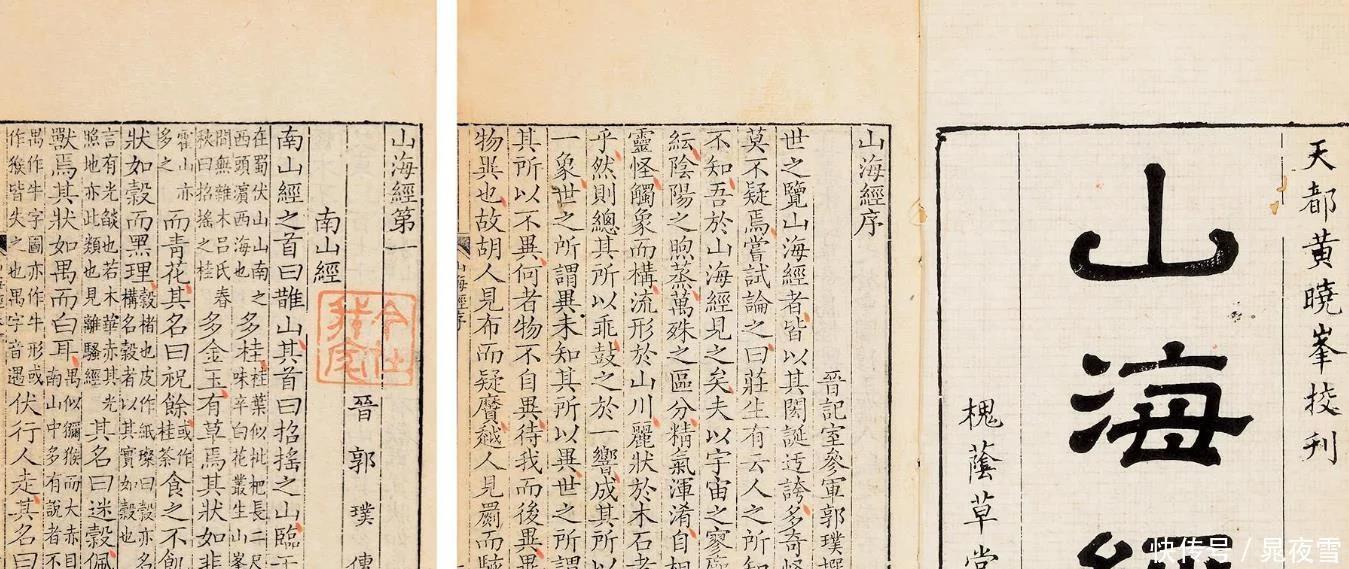 天都黄曉峯挍刊
山海經
槐蔭草堂
山海經序
晉記室參軍郭璞撰
世之覽山海經者皆以其閎誕迂誇多奇怪
莫不疑焉嘗試論之曰莊生有云人之所知
不知吾於山海經見之矣夫以宇宙之寥
紜陰陽之煦蒸萬殊之區分精氣渾淆自相
靈怪觸象而構流形於山川麗狀於木石者
乎然則總其所以乖鼓之於一響成其所以
一象世之所謂異未知其所以異世之所謂
其所以不異何者物不自異待我而後異異
物異也故胡人見布而疑黂越人見罽而駭
山海經序
山海經第一
晉郭璞傳
南山經
南山經之首曰䧿山其首曰招搖之山臨于
在蜀伏山山南之
西頭濱西海也
多桂
桂葉似枇杷長二尺
味辛白花叢生山峯
間無雜木呂氏春
秋曰招搖之桂
多金玉有草焉其狀如韭
霍山亦
多之
而青花其名曰祝餘
或作
桂荼
食之不飢
狀如榖而黑理
榖楮也皮作紙璨曰榖亦名
構名榖者以其實如榖也
言有光燄也若木華赤其光
照地亦此類也見離騷經
其名曰迷榖佩
獸焉其狀如禺而白耳
禺似獼猴而大赤目
南山中多有說者不
禺作牛字圖亦作牛形或
作猴皆失之也禺字音遇
伏行人走其名曰
快传号/晁夜雪